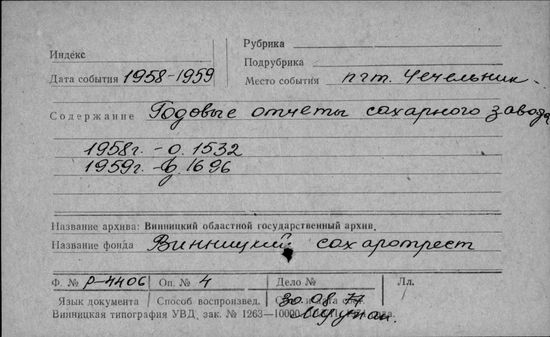 Рубрика
Индекс
Подрубрика
Дата события 1958-1959 Место события пгт. Чечельник
Содержание Годовые отчеты сахарного завода
1958г. - о. 1532
1959г. - 1696
Название архива: Винницкий областной государственный архив.
Название фонда Винницкий сахаротрест
Ф. № Р-4406 Оп. № 4 Дело № Лл.
Язык документа Способ воспроизвед. 30.08.77
Винницкая типография УВД, зак. № 1263—10000